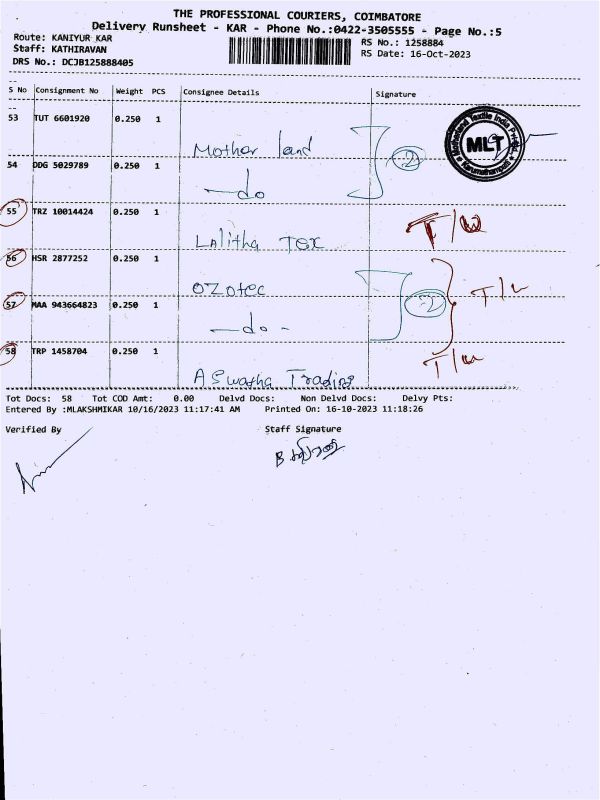 THE PROFESSIONAL COURIERS, COIMBATORE
Delivery Runsheet - KAR - Phone No.:0422-3505555 - Page No.:5
Route: KANIYUR KAR
RS No.: 1258884
Staff: KATHIRAVAN
RS Date: 16-Oct-2023
DRS No.: DCJB125888405
S No Consignment No Weight PCS Consignee Details Signature
53 TUT 6601920 0.250 1
Mother land 2
MLT
54 DDG 5029789 0.250 1
-do
55 TRZ 10014424 0.250 1
Lalitha Tex T/W
56 HSR 2877252 0.250 1
Ozotec 2 T/W
57 MAA 943664823 0.250 1
-do-
58 TRP 1458704 0.250 1
Aswatha Trading T/W
Tot Docs: 58 Tot COD Amt: 0.00 Delvd Docs: Non Delvd Docs: Delvy Pts:
Entered By :MLAKSHMIKAR 10/16/2023 11:17:41 AM Printed On: 16-10-2023 11:18:26
Verified By Staff Signature